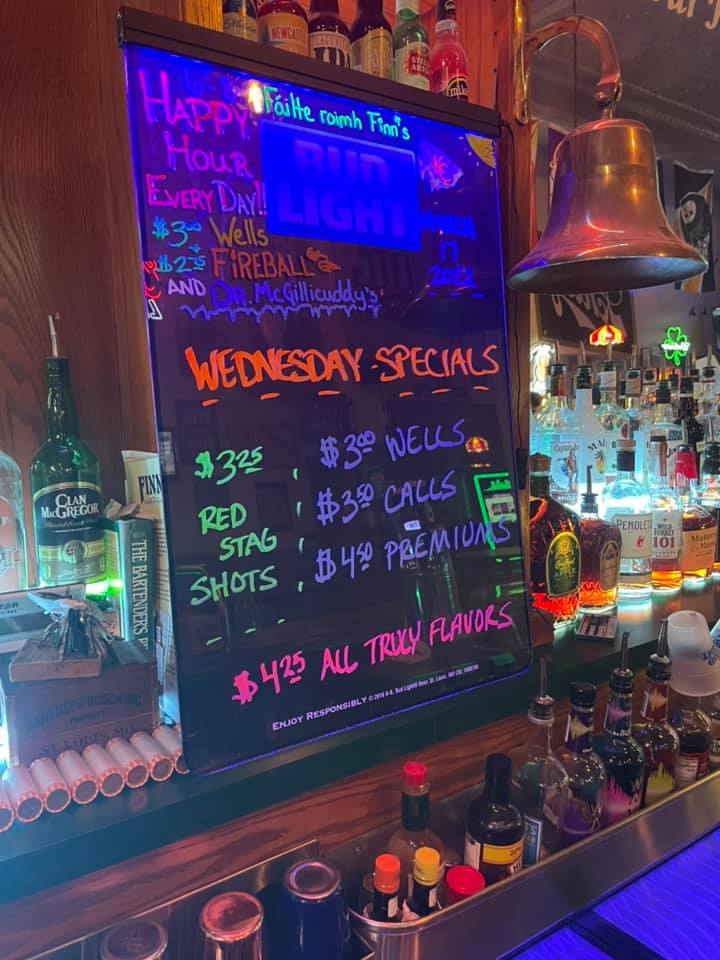 Fáilte roimh Finn's
HAPPY
HOUR
EVERY DAY!!
$3.00 Wells
$2.75 FIREBALL
AND DR. McGillicuddy's
BUD
LIGHT
KC
MARCH
17
WEDNESDAY-SPECIALS
$3.25
RED
STAG
SHOTS
$3.00 WELLS
$3.50 CALLS
$4.50 PREMIUMS
$4.25 ALL TRULY FLAVORS
ENJOY RESPONSIBLY
CLAN
MACGREGOR
THE BARTENDER'S
FINN
ANHEUSER-BUSCH INC
ST. LOUIS, MO
APPLE
PENDLET
WILD
TURKEY
101
Maker's
Mark